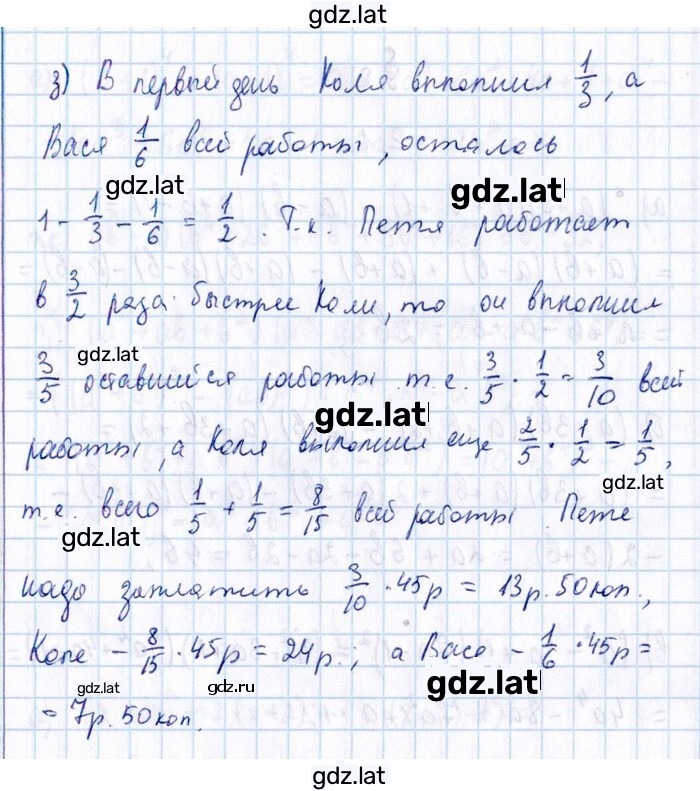 gdz.lat
з) В первый день Коля выполнил 1/3, а
Вася 1/6 всей работы, осталось
gdz.lat
gdz.lat
1 - 1/3 - 1/6 = 1/2. Т.к. Петя работает
в 3/2 раза быстрее Коли, то он выполнил
gdz.lat
3/5 оставшейся работы т.е. 3/5 · 1/2 = 3/10 всей
gdz.lat
работы, а Коля выполнил еще 2/5 · 1/2 = 1/5,
gdz.lat
т.е. всего 1/5 + 1/5 = 8/15 всей работы. Пете
gdz.lat
надо заплатить 3/10 · 45р = 13р. 50коп.,
Коле - 8/15 · 45р = 24р.; а Васе - 1/6 · 45р =
gdz.lat
gdz.ru
gdz.lat
= 7р. 50коп.
gdz.lat